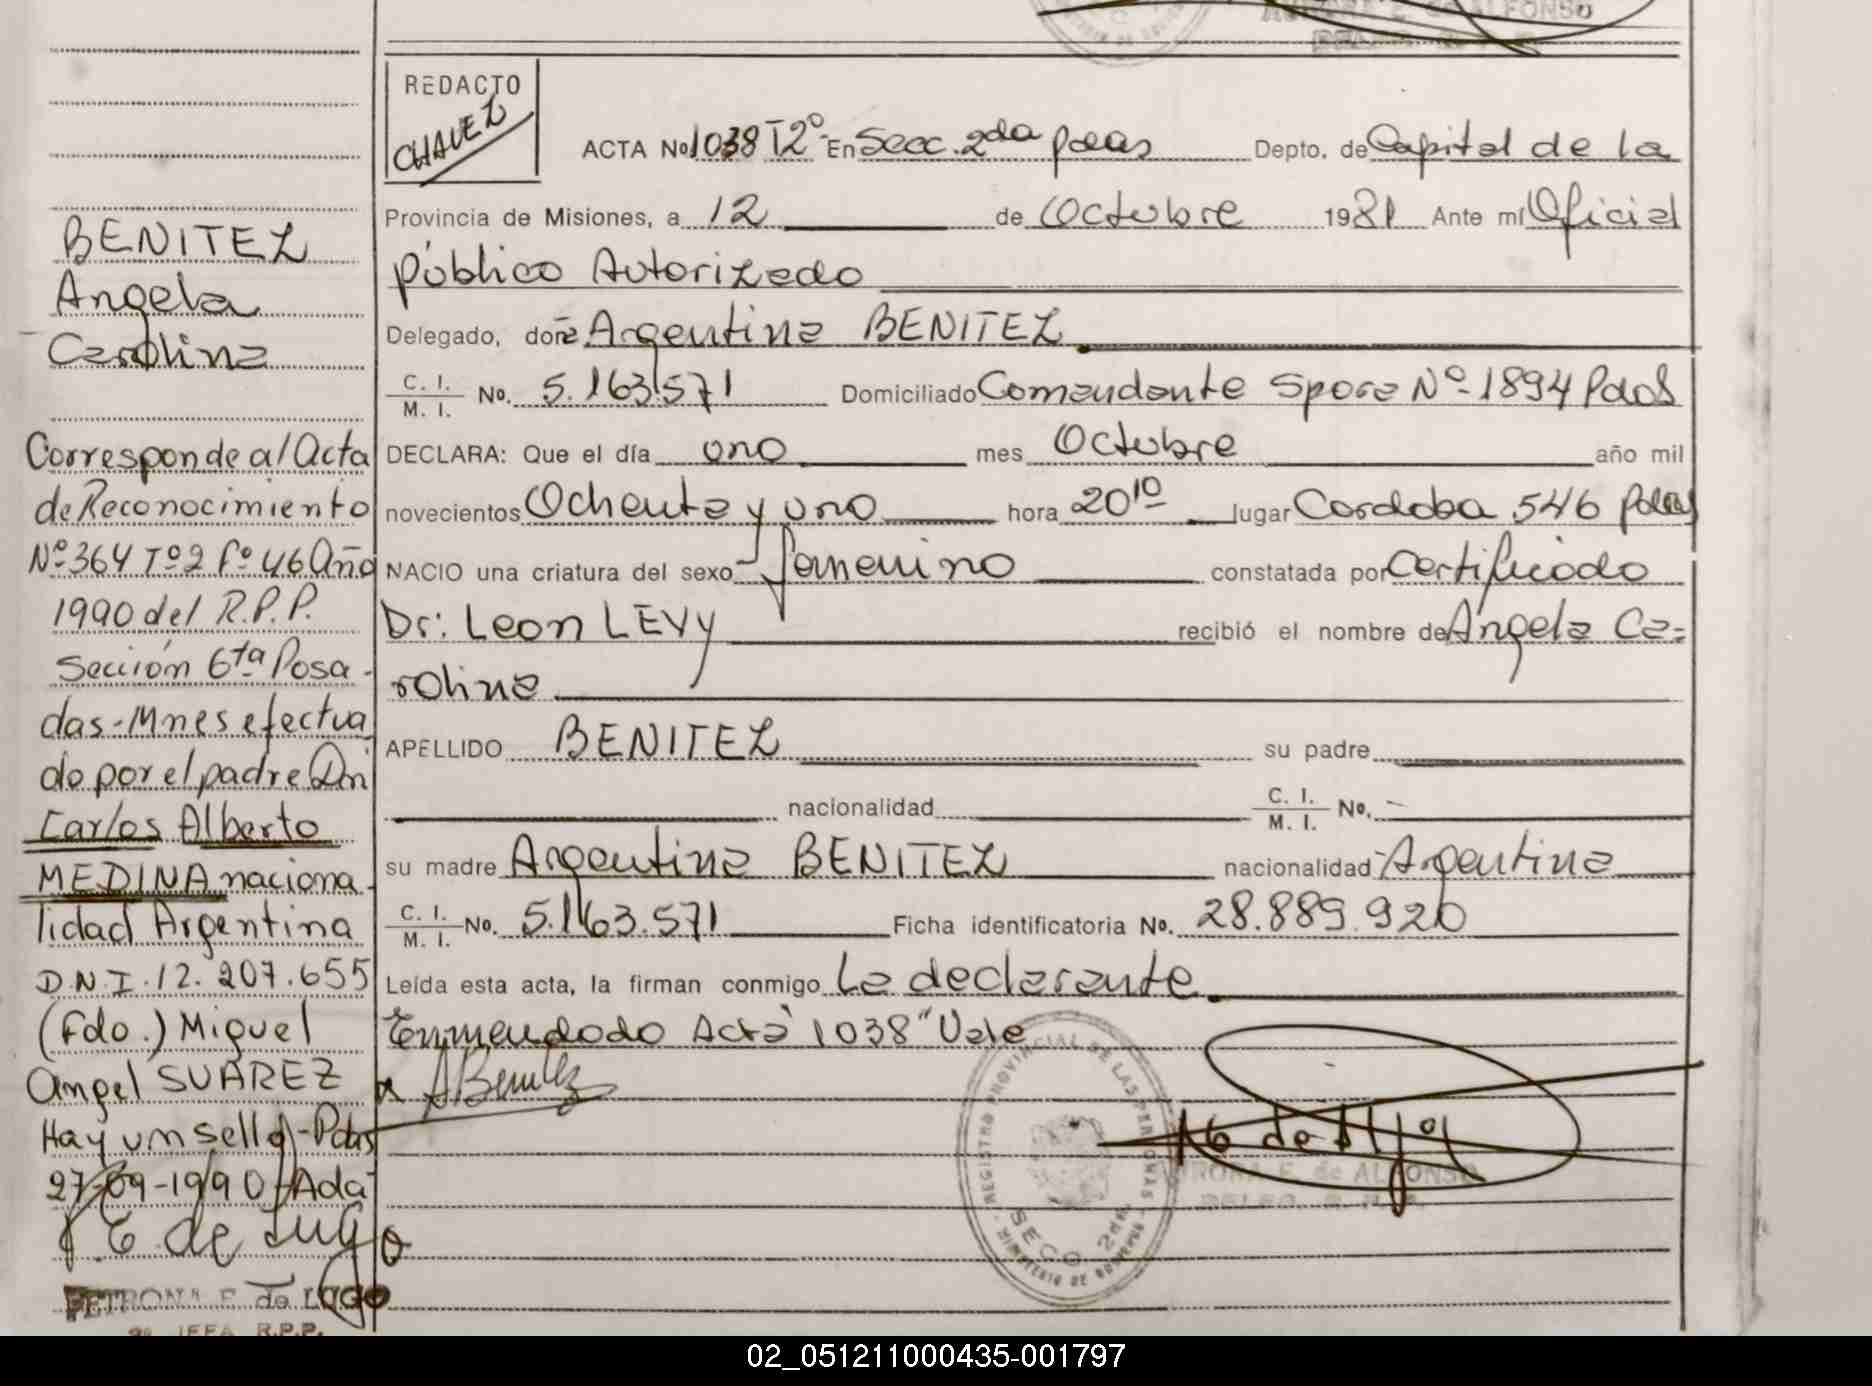 ALFONSO
REDACTO
CHAVEZ
ACTA No 1038 T2º En Secc. 2da pdas Depto. de Capital de la
Provincia de Misiones, a 12 de Octubre 1981 Ante mí Oficial
público Autorizado
Delegado, doña Argentina BENITEZ
C. I. / M. I. No. 5.163.571 Domiciliado Comandante Spora Nº 1894 Pdas
DECLARA: Que el día uno mes Octubre año mil
novecientos Ochenta y uno hora 20 10 lugar Cordoba 546 Pdas
NACIO una criatura del sexo femenino constatada por Certificado
Dr: Leon LEVY recibió el nombre de Angela Ca-
rolina
APELLIDO BENITEZ su padre
nacionalidad C. I. / M. I. No. -
su madre Argentina BENITEZ nacionalidad Argentina
C. I. / M. I. No. 5.163.571 Ficha identificatoria No. 28.889.920
Leída esta acta, la firman conmigo La declarante
Enmendado Acta "1038" Vale
A Benitez
REGISTRO PROVINCIAL DE LAS PERSONAS
SECC 2da
MINISTERIO DE GOBIERNO
E. de ALFONSO
BENITEZ
Angela
Carolina
Corresponde al Acta
de Reconocimiento
Nº 364 Tº 2 Fº 46 Año
1990 del R.P.P.
Sección 6ta Posa-
das-Mnes efectua
do por el padre Dn
Carlos Alberto
MEDINA naciona-
lidad Argentina
D.N.I. 12.207.655
(Fdo.) Miguel
Angel SUAREZ
Hay un sello-Pdas
27-09-1990 Ada
P E de Lugo
PETRONA E. de LUGO
JEFA R.P.P.
02_051211000435-001797